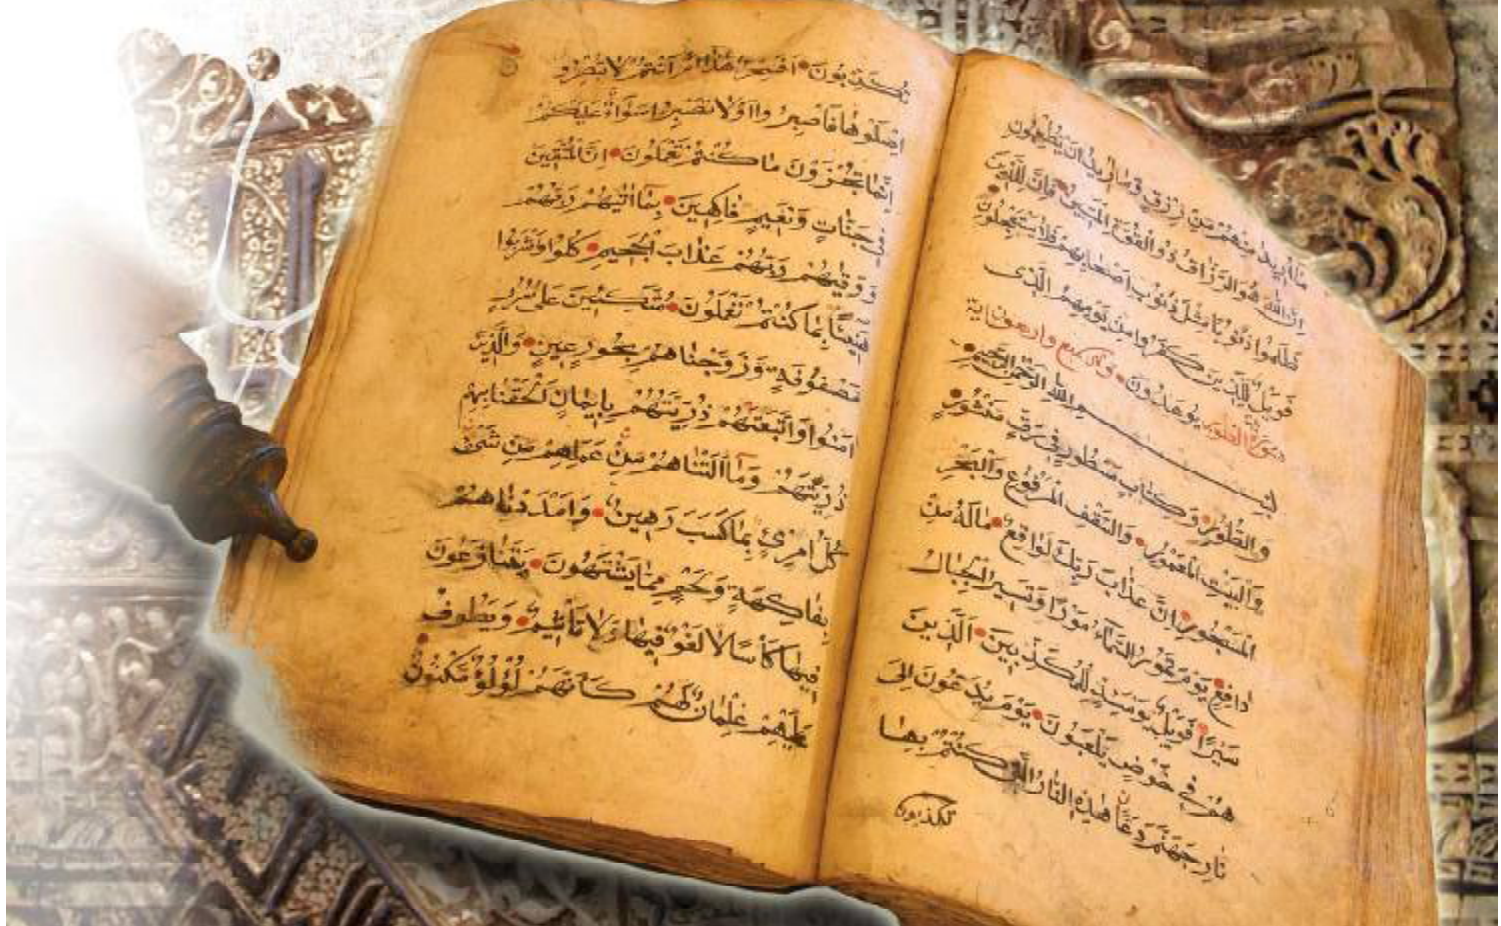 مَا اُرِيدُ مِنْهُمْ مِنْ رِزْقٍ وَمَا اُرِيدُ اَنْ يُطْعِمُونِ
اِنَّ اللّٰهَ هُوَ الرَّزَّاقُ ذُو الْقُوَّةِ الْمَتِينُ • فَاِنَّ لِلَّذِينَ
ظَلَمُوا ذَنُوبًا مِثْلَ ذَنُوبِ اَصْحَابِهِمْ فَلَا يَسْتَعْجِلُونِ •
فَوَيْلٌ لِلَّذِينَ كَفَرُوا مِنْ يَوْمِهِمُ الَّذِى
يُوعَدُونَ • سورة الطور وهى سبع واربعون اية
بِسْمِ اللّٰهِ الرَّحْمٰنِ الرَّحِيمِ •
وَالطُّورِ • وَكِتَابٍ مَسْطُورٍ فِى رَقٍّ مَنْشُورٍ •
وَالْبَيْتِ الْمَعْمُورِ • وَالسَّقْفِ الْمَرْفُوعِ وَالْبَحْرِ
الْمَسْجُورِ • اِنَّ عَذَابَ رَبِّكَ لَوَاقِعٌ • مَالَهُ مِنْ
دَافِعٍ • يَوْمَ تَمُورُ السَّمَاءُ مَوْرًا وَتَسِيرُ الْجِبَالُ
سَيْرًا • فَوَيْلٌ يَوْمَئِذٍ لِلْمُكَذِّبِينَ • الَّذِينَ
هُمْ فِى خَوْضٍ يَلْعَبُونَ • يَوْمَ يُدَعُّونَ اِلَى
نَارِ جَهَنَّمَ دَعًّا هٰذِهِ النَّارُ الَّتِى كُنْتُمْ بِهَا
تكذبون
تُكَذِّبُونَ • اَفَسِحْرٌ هٰذَا اَمْ اَنْتُمْ لَا تُبْصِرُو
اِصْلَوْهَا فَاصْبِرُوا اَوْلَا تَصْبِرُوا سَوَاءٌ عَلَيْكُمْ
اِنَّمَا تُجْزَوْنَ مَا كُنْتُمْ تَعْمَلُونَ • اِنَّ الْمُتَّقِينَ
فِى جَنَّاتٍ وَنَعِيمٍ فَاكِهِينَ • بِمَا اٰتٰيهُمْ رَبُّهُمْ
وَوَقٰيهُمْ رَبُّهُمْ عَذَابَ الْجَحِيمِ • كُلُوا وَاشْرَبُوا
هَنِيئًا بِمَا كُنْتُمْ تَعْمَلُونَ • مُتَّكِئِينَ عَلَى سُرُرٍ
مَصْفُوفَةٍ وَزَوَّجْنَاهُمْ بِحُورٍ عِينٍ • وَالَّذِينَ
اٰمَنُوا وَاتَّبَعَتْهُمْ ذُرِّيَّتُهُمْ بِاِيمَانٍ اَلْحَقْنَا بِهِمْ
ذُرِّيَّتَهُمْ وَمَا اَلَتْنَاهُمْ مِنْ عَمَلِهِمْ مِنْ شَىْءٍ
كُلُّ امْرِئٍ بِمَا كَسَبَ رَهِينٌ • وَاَمْدَدْنَاهُمْ
بِفَاكِهَةٍ وَلَحْمٍ مِمَّا يَشْتَهُونَ • يَتَنَازَعُونَ
فِيهَا كَاْسًا لَا لَغْوٌ فِيهَا وَلَا تَاْثِيمٌ • وَيَطُوفُ
عَلَيْهِمْ غِلْمَانٌ لَهُمْ كَاَنَّهُمْ لُؤْلُؤٌ مَكْنُونٌ •